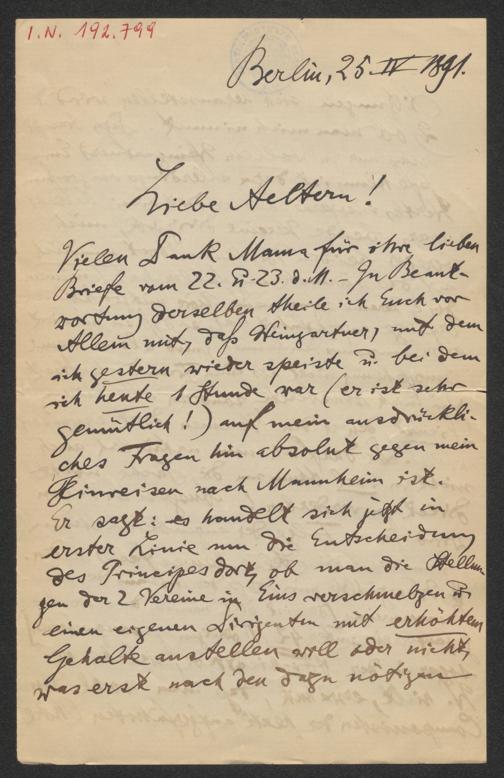 I.N. 192.799
Berlin, 25. IV 1891.
Liebe Aeltern!
Vielen Dank Mama für ihre lieben
Briefe vom 22. u. 23. d. M. – In Beant-
wortung derselben theile ich Euch vor
Allem mit, daß Weingartner, mit dem
ich gestern wieder speiste u. bei dem
ich heute 1 Stunde war (er ist sehr
gemütlich!) auf mein ausdrückli-
ches Fragen hin absolut gegen mein
Hinreisen nach Mannheim ist.
Er sagt: es handelt sich jetzt in
erster Linie um die Entscheidung
des Principes dort, ob man die Stellun-
gen der 2 Vereine in Eins verschmelzen u.
einen eigenen Dirigenten mit erhöhtem
Gehalte anstellen will oder nicht,
was erst nach den dazu nötigen